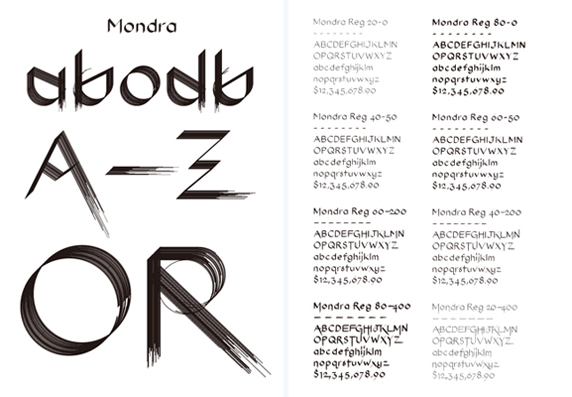 Mondra
abodb
A–Z
OR
Mondra Reg 20-0
--------
ABCDEFGHIJKLMN
OPQRSTUVWXYZ
abcdefghijklm
nopqrstuvwxyz
$12,345,678.90
Mondra Reg 40-50
--------
ABCDEFGHIJKLMN
OPQRSTUVWXYZ
abcdefghijklm
nopqrstuvwxyz
$12,345,678.90
Mondra Reg 60-200
--------
ABCDEFGHIJKLMN
OPQRSTUVWXYZ
abcdefghijklm
nopqrstuvwxyz
$12,345,678.90
Mondra Reg 80-400
--------
ABCDEFGHIJKLMN
OPQRSTUVWXYZ
abcdefghijklm
nopqrstuvwxyz
$12,345,678.90
Mondra Reg 80-0
--------
ABCDEFGHIJKLMN
OPQRSTUVWXYZ
abcdefghijklm
nopqrstuvwxyz
$12,345,678.90
Mondra Reg 60-50
--------
ABCDEFGHIJKLMN
OPQRSTUVWXYZ
abcdefghijklm
nopqrstuvwxyz
$12,345,678.90
Mondra Reg 40-200
--------
ABCDEFGHIJKLMN
OPQRSTUVWXYZ
abcdefghijklm
nopqrstuvwxyz
$12,345,678.90
Mondra Reg 20-400
--------
ABCDEFGHIJKLMN
OPQRSTUVWXYZ
abcdefghijklm
nopqrstuvwxyz
$12,345,678.90